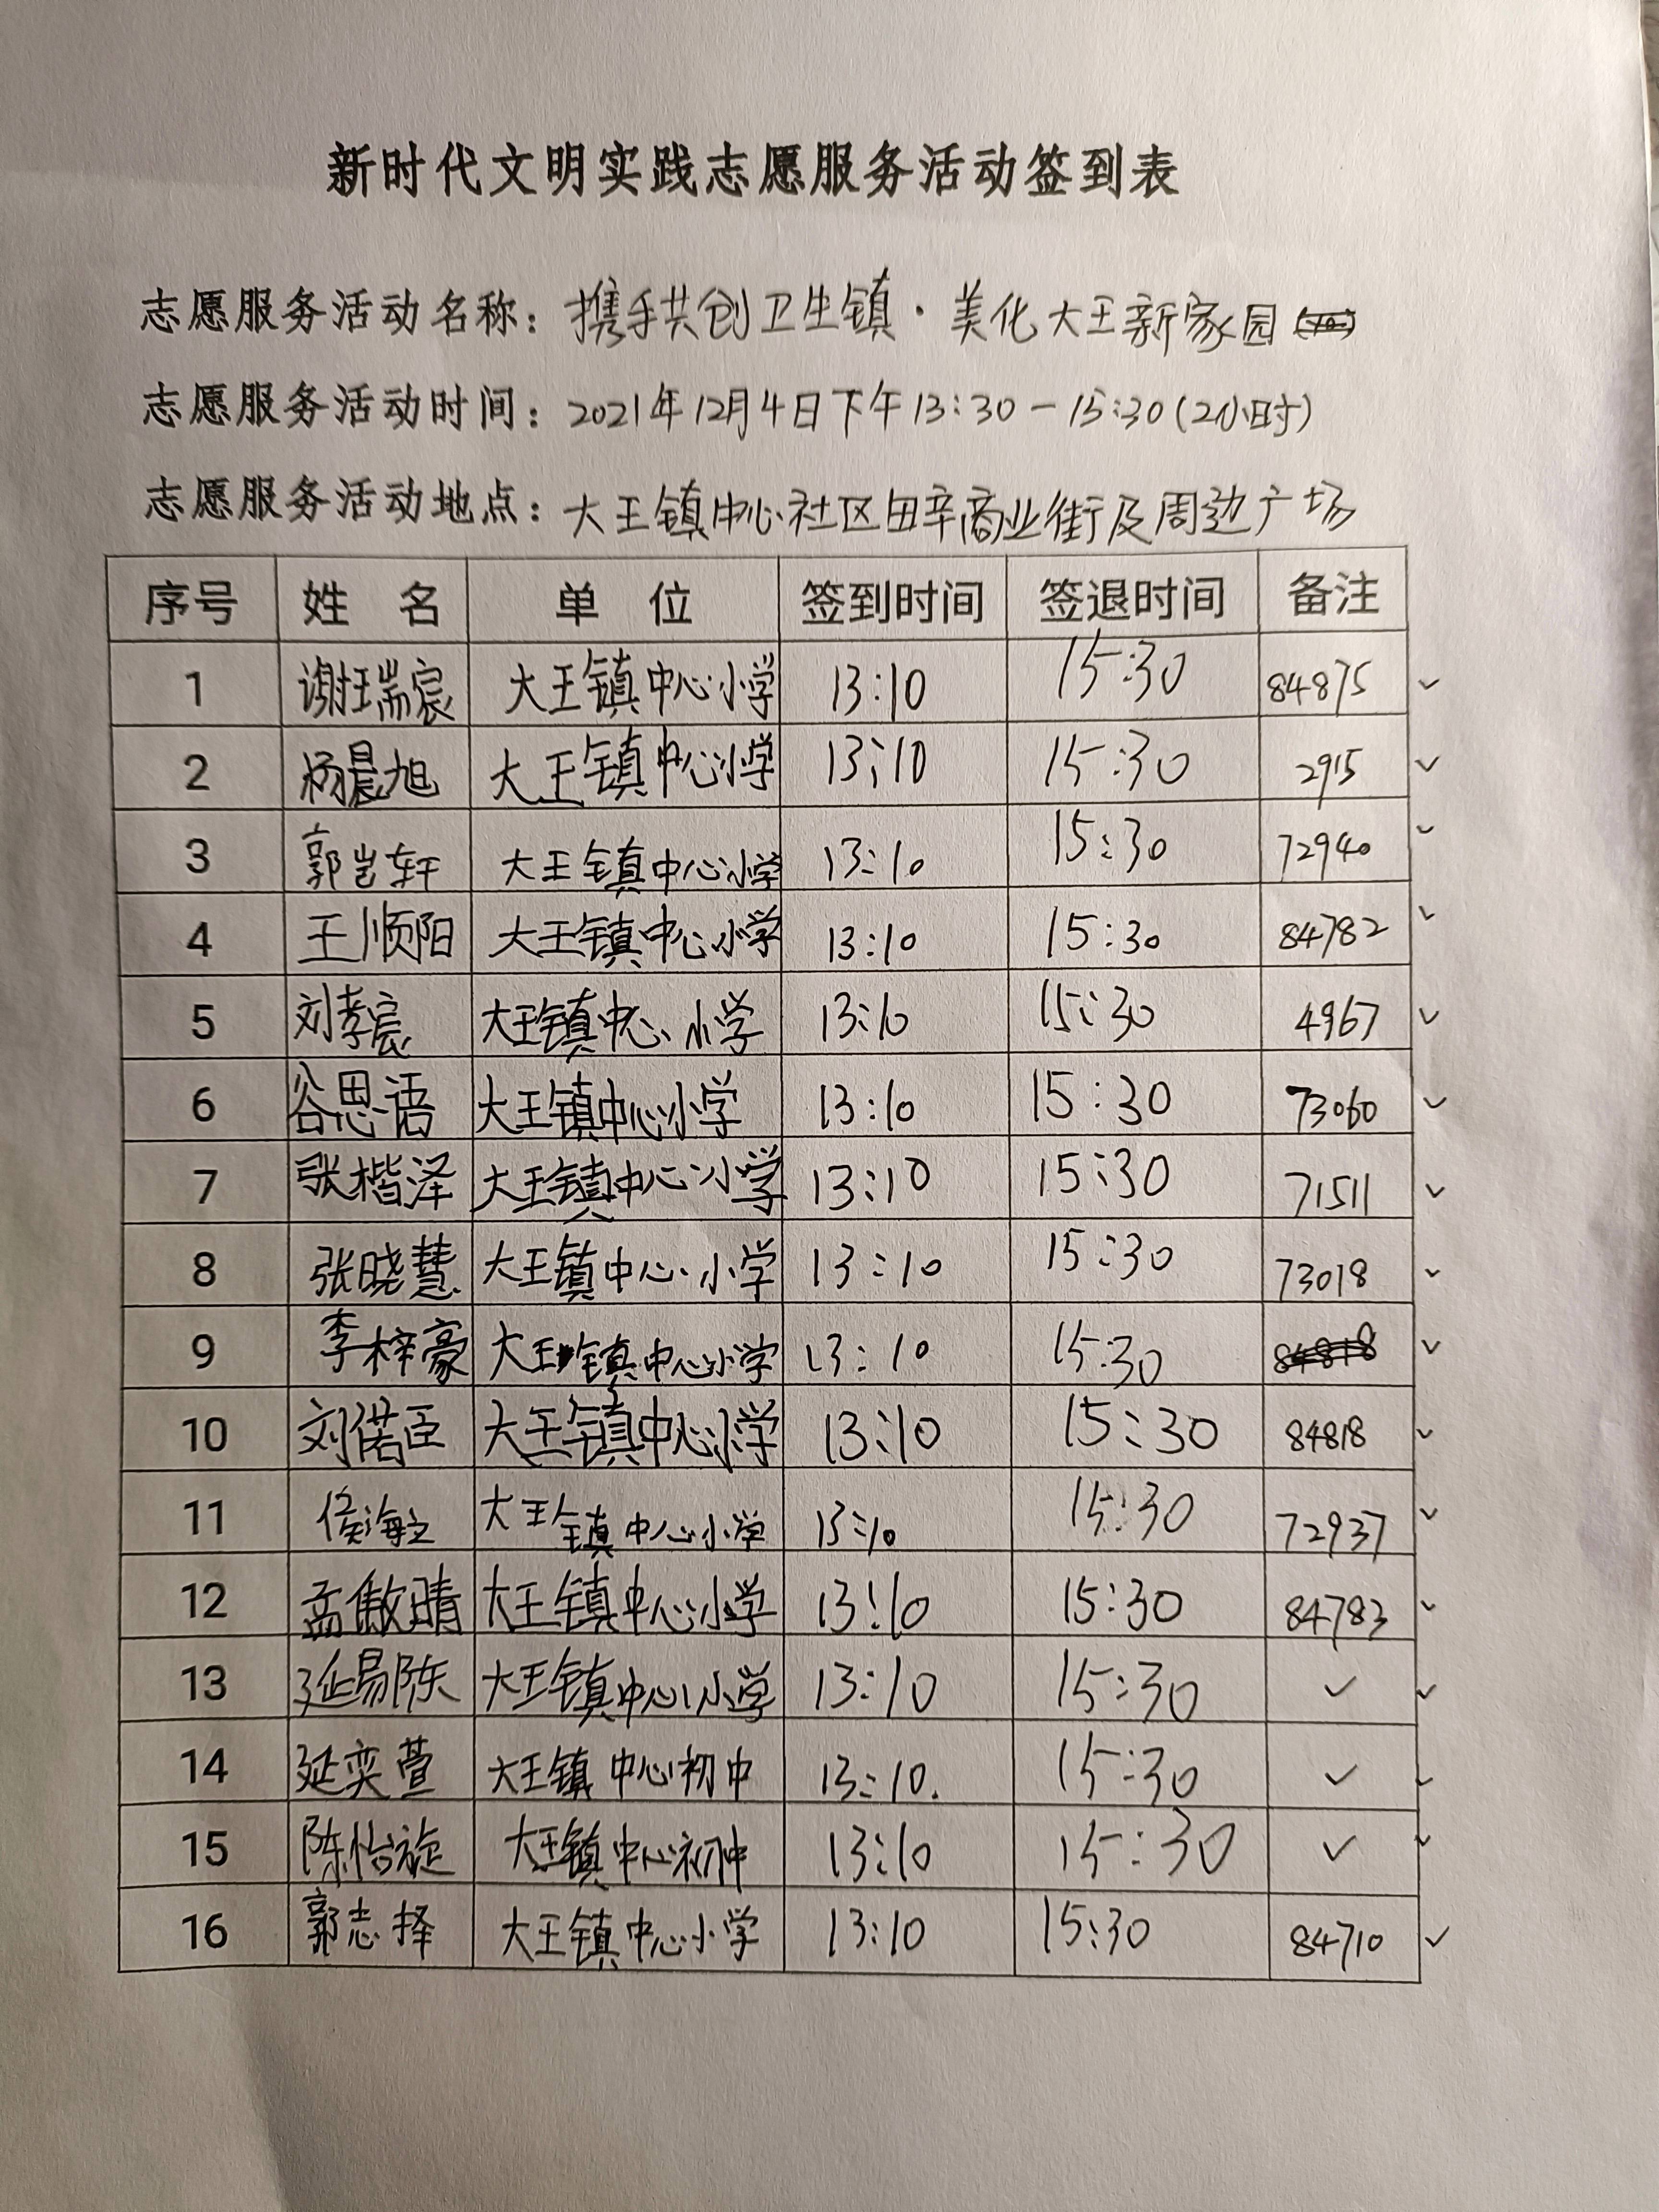 新时代文明实践志愿服务活动签到表
志愿服务活动名称：携手共创卫生镇·美化大王新家园
志愿服务活动时间：2021年12月4日下午13:30-15:30(2小时)
志愿服务活动地点：大王镇中心社区田辛商业街及周边广场
序号 姓名 单位 签到时间 签退时间 备注
1 谢瑞宸 大王镇中心小学 13:10 15:30 84875 ✓
2 杨晨旭 大王镇中心小学 13:10 15:30 2915 ✓
3 郭岂轩 大王镇中心小学 13:10 15:30 72940 ✓
4 王顺阳 大王镇中心小学 13:10 15:30 84782 ✓
5 刘孝宸 大王镇中心小学 13:10 15:30 4967 ✓
6 谷思语 大王镇中心小学 13:10 15:30 73060 ✓
7 张楷泽 大王镇中心小学 13:10 15:30 71511 ✓
8 张晓慧 大王镇中心小学 13:10 15:30 73018 ✓
9 李梓豪 大王镇中心小学 13:10 15:30 84818 ✓
10 刘偌臣 大王镇中心小学 13:10 15:30 84818 ✓
11 侯海 大王镇中心小学 13:10 15:30 72937 ✓
12 孟傲晴 大王镇中心小学 13:10 15:30 84783 ✓
13 延易陈 大王镇中心小学 13:10 15:30 ✓ ✓
14 延奕萱 大王镇中心初中 13:10. 15:30 ✓ ✓
15 陈怡旋 大王镇中心初中 13:10 15:30 ✓ ✓
16 郭志择 大王镇中心小学 13:10 15:30 84710 ✓